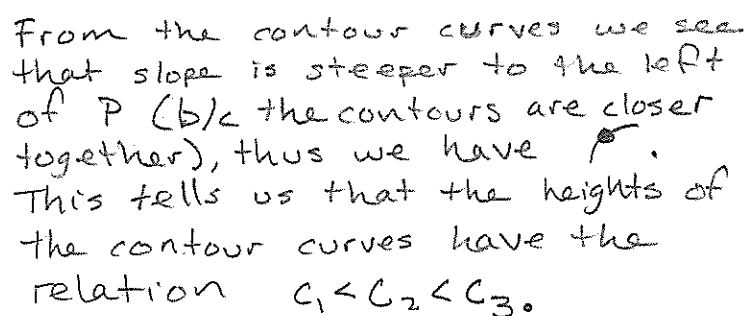 From the contour curves we see
that slope is steeper to the left
of P (b/c the contours are closer
together), thus we have .
This tells us that the heights of
the contour curves have the
relation C₁ < C₂ < C₃.